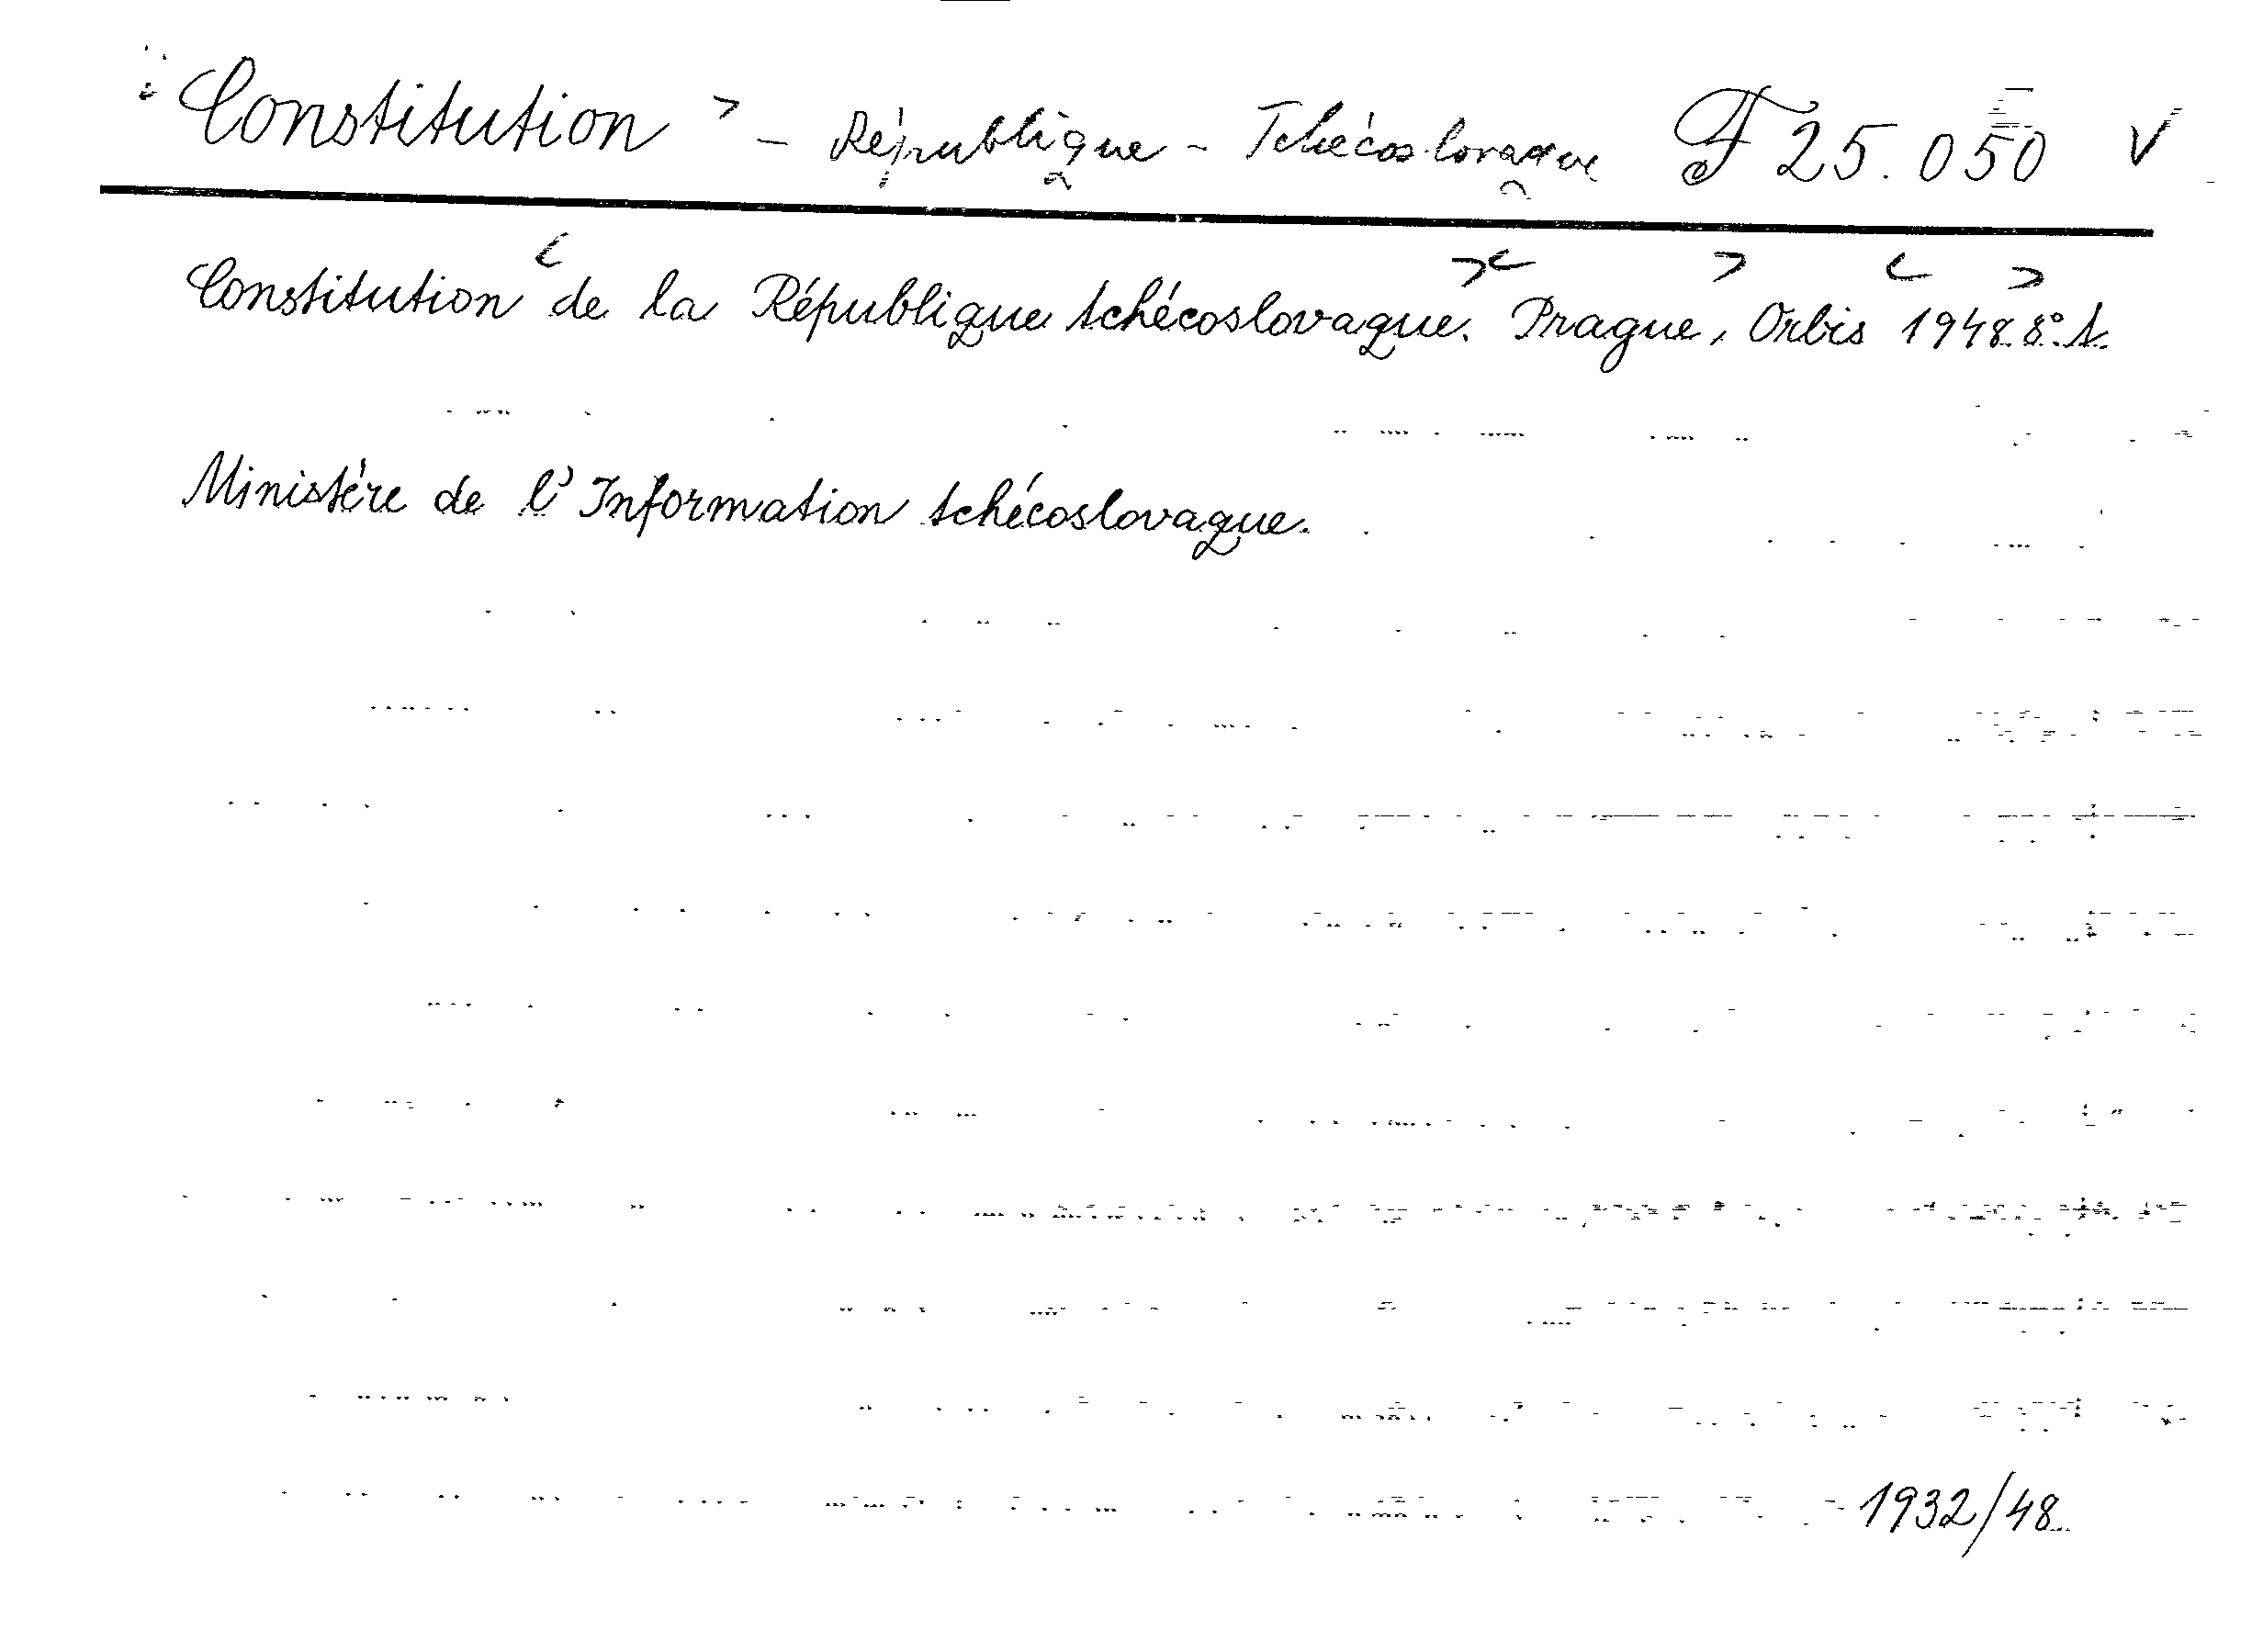 Constitution - République - Tchécoslovaque F 25.050 V
Constitution de la République tchécoslovaque. Prague, Orbis 1948. 8°. s.
Ministère de l'Information tchécoslovaque.
1932/48.